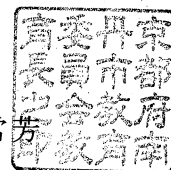 京都府南
丹市教育
委員会教
育長之印
芳